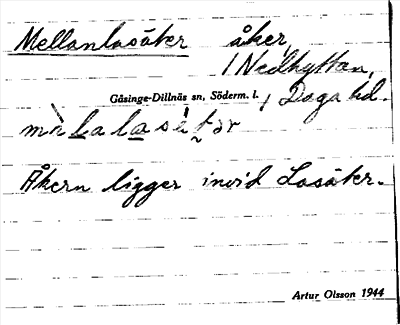 Mellanlosåker åker,
/ Nedhyttan,
Gåsinge-Dillnäs sn, Söderm. l. / Daga hd.
Åkern ligger invid Losåker.
Artur Olsson 1944